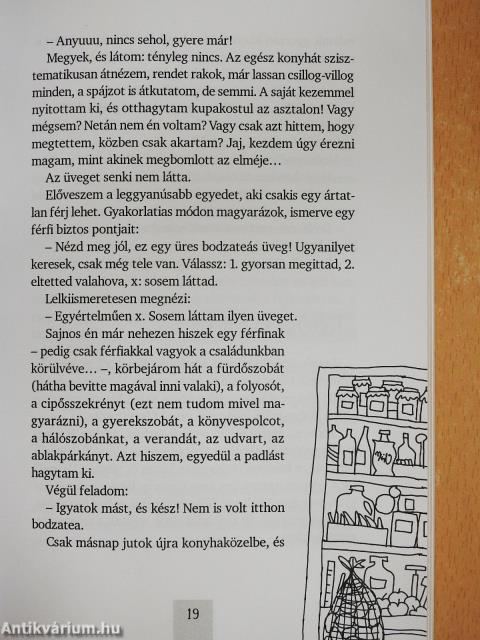 – Anyuuu, nincs sehol, gyere már!
Megyek, és látom: tényleg nincs. Az egész konyhát szisz-
tematikusan átnézem, rendet rakok, már lassan csillog-villog
minden, a spájzot is átkutatom, de semmi. A saját kezemmel
nyitottam ki, és otthagytam kupakostul az asztalon! Vagy
mégsem? Netán nem én voltam? Vagy csak azt hittem, hogy
megtettem, közben csak akartam? Jaj, kezdem úgy érezni
magam, mint akinek megbomlott az elméje…
Az üveget senki nem látta.
Előveszem a leggyanúsabb egyedet, aki csakis egy ártat-
lan férj lehet. Gyakorlatias módon magyarázok, ismerve egy
férfi biztos pontjait:
– Nézd meg jól, ez egy üres bodzateás üveg! Ugyanilyet
keresek, csak még tele van. Válassz: 1. gyorsan megittad, 2.
eltetted valahova, x: sosem láttad.
Lelkiismeretesen megnézi:
– Egyértelműen x. Sosem láttam ilyen üveget.
Sajnos én már nehezen hiszek egy férfinak
– pedig csak férfiakkal vagyok a családunkban
körülvéve… –, körbejárom hát a fürdőszobát
(hátha bevitte magával inni valaki), a folyosót,
a cipősszekrényt (ezt nem tudom mivel ma-
gyarázni), a gyerekszobát, a könyvespolcot,
a hálószobánkat, a verandát, az udvart, az
ablakpárkányt. Azt hiszem, egyedül a padlást
hagytam ki.
Végül feladom:
– Igyatok mást, és kész! Nem is volt itthon
bodzatea.
Csak másnap jutok újra konyhaközelbe, és
19
Antikvárium.hu